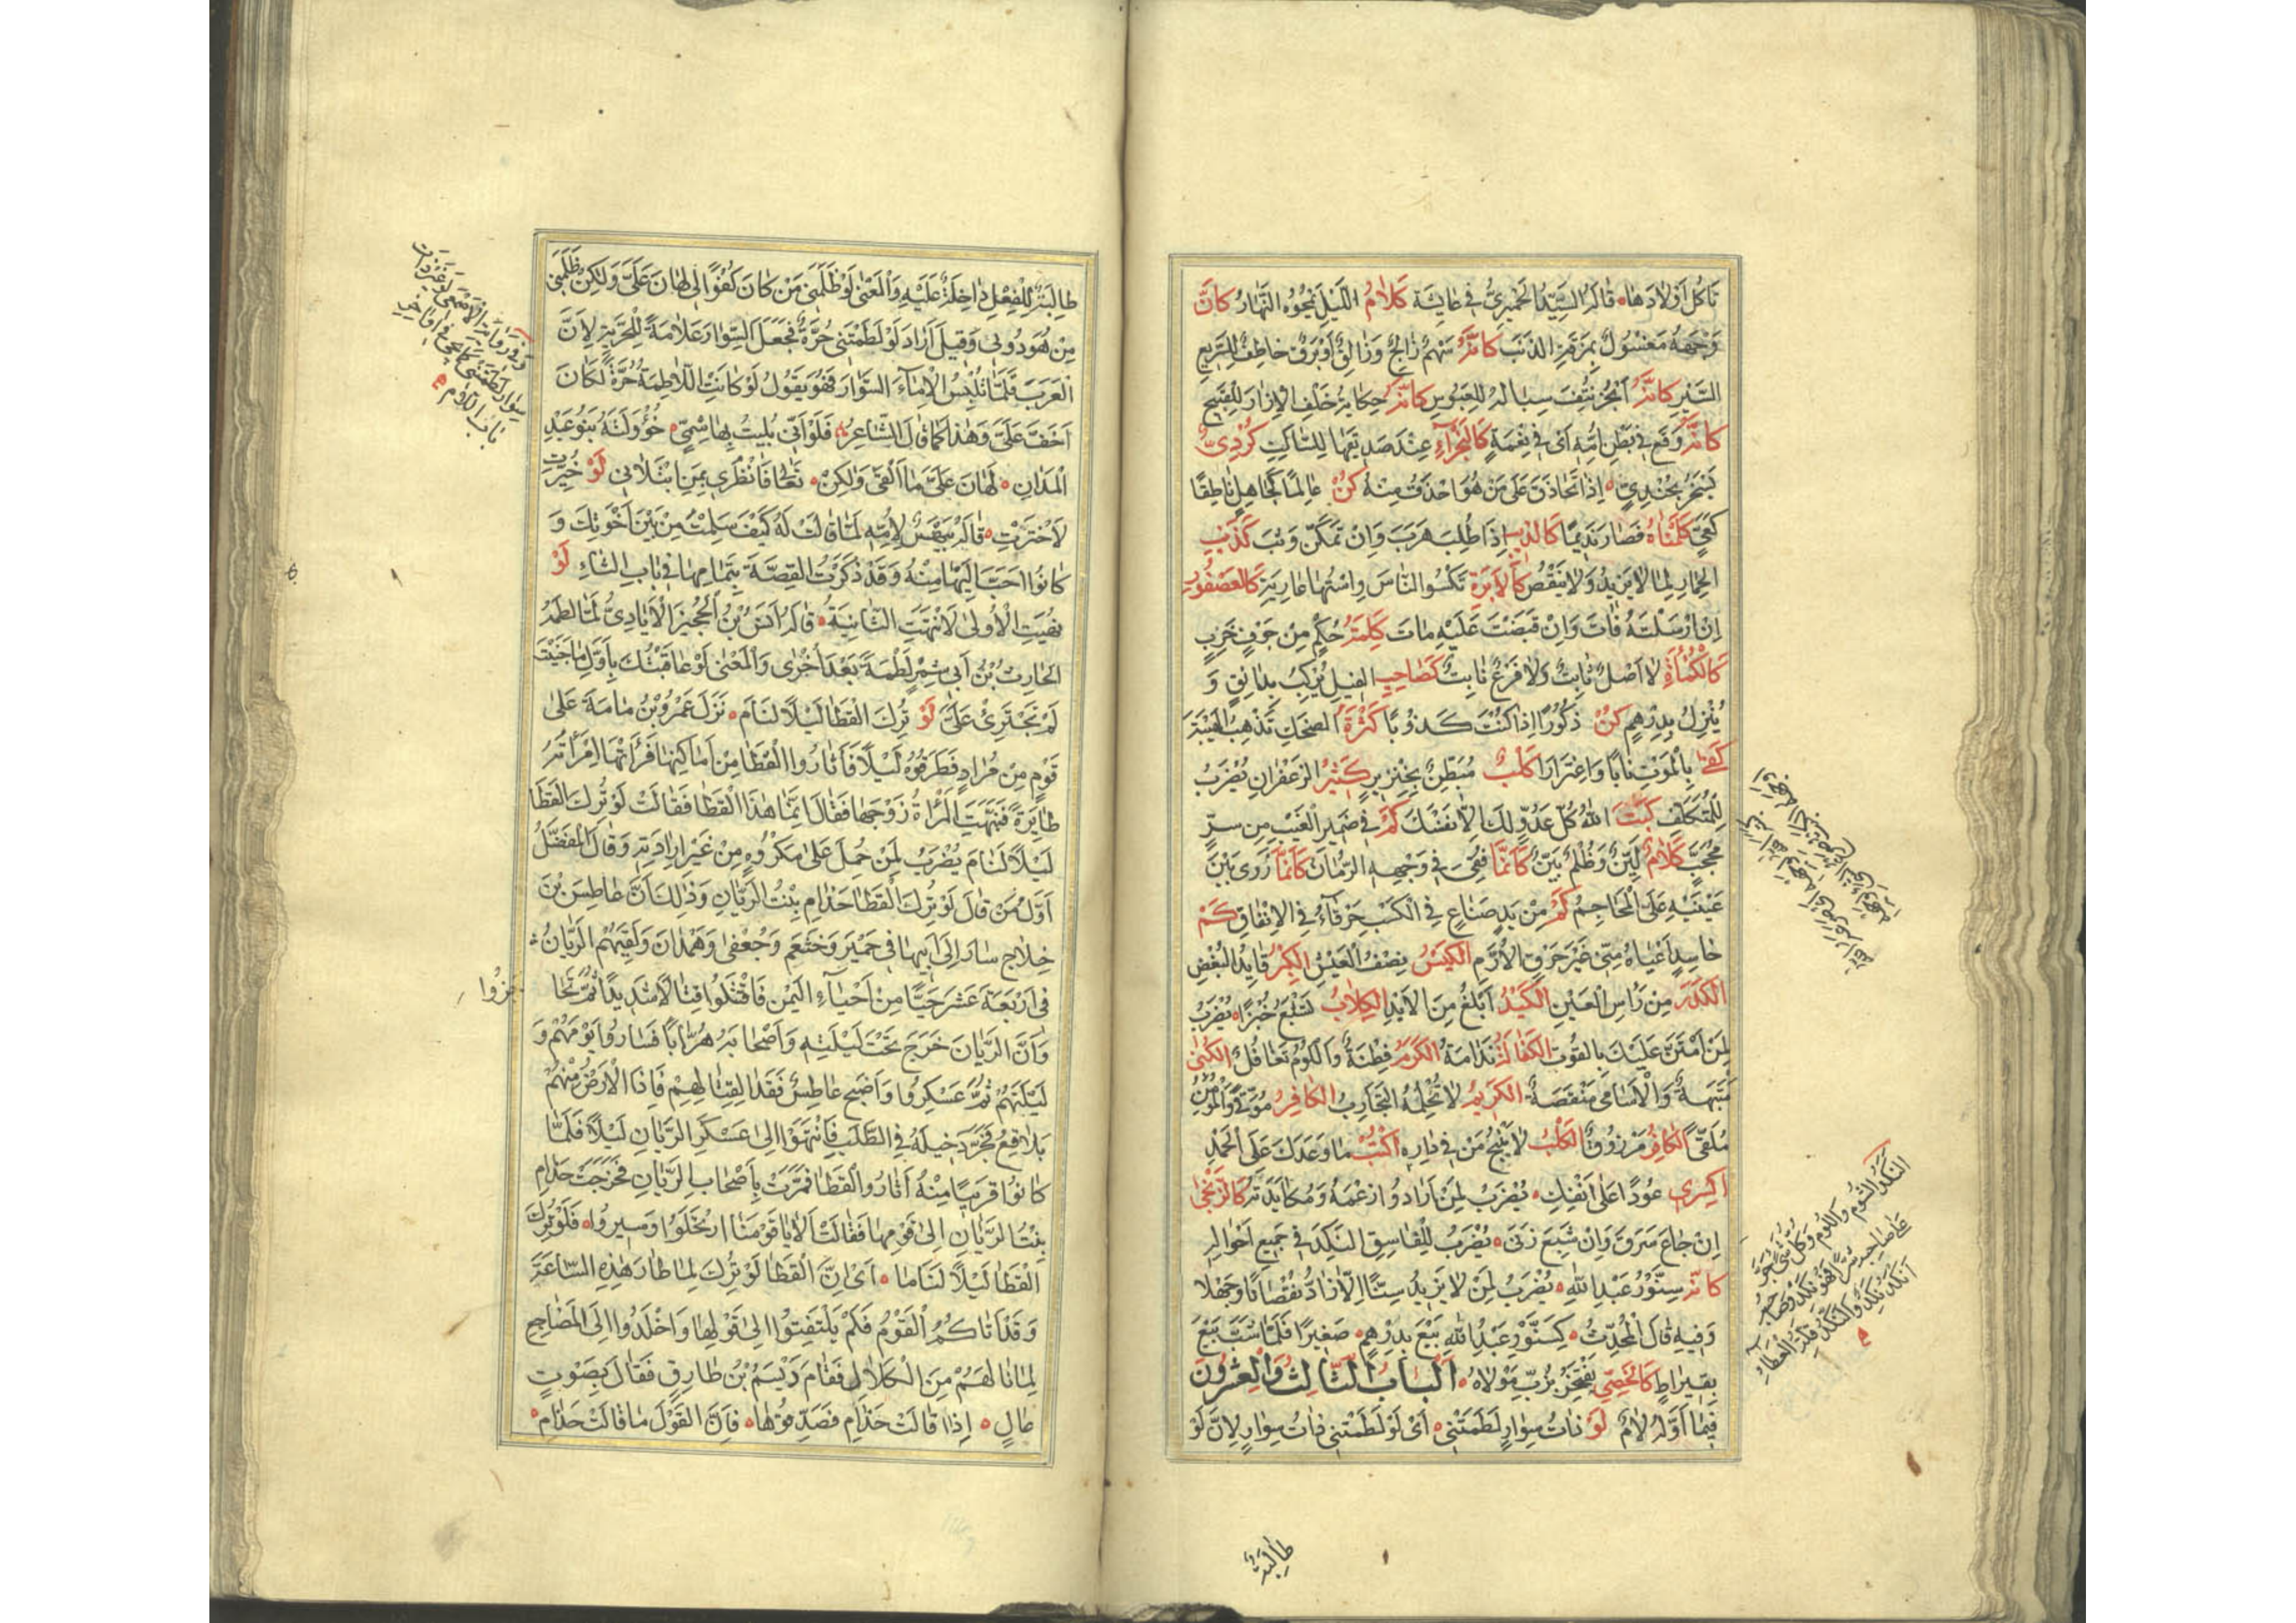 تَأكُلَ أَوْلَادَهَا ۰ قَالَهُ السَّيِّدُ الْحِمْيَرِيُّ فِي عَائِشَةَ كَلَامُ اللَّيْلِ يَمْحُوهُ النَّهَارُ كَأَنَّ
وَجْهَهُ مَغْسُولٌ بِمَرَقَةِ الذَّنَبِ كَأَنَّهُ سَهْمٌ زَالِجٌ وَزَالِقٌ أَوْ بَرْقٌ خَاطِفٌ لِلسَّرِيعِ
السَّيْرِ كَأَنَّهُ نُتِفَ سِبَالُهُ لِلْعَبُوسِ كَأَنَّهُ حِكَايَةٌ خَلْفَ الْإِزَارِ لِلْقَبِيحِ
كَأَنَّهُ وَقَعَ فِي بَطْنِ أُمِّهِ أَيْ فِي نِعْمَةٍ عِنْدَ لِلسَّاكِتِ كُرْدِيٌّ
يَسْخَرُ بِجُنْدِيٍّ ۰ إِذَا تَحَاذَقَ عَلَى مَنْ هُوَ أَحْذَقُ مِنْهُ كُنْ عَالِمًا كَجَاهِلٍ نَاطِقًا
كَعَيٍّ كَلَّمْنَاهُ فَصَارَ نَدِيمًا كَالذِّئْبِ إِذَا طُلِبَ هَرَبَ وَإِنْ تَمَكَّنَ وَثَبَ كَذَنَبِ
الْحِمَارِ لِمَا لَا يَزِيدُ وَلَا يَنْقُصُ كَالْإِبْرَةِ تَكْسُو النَّاسَ وَاسْتُهَا عَارِيَةٌ كَالْعُصْفُورِ
إِنْ أَرْسَلْتَهُ فَاتَ وَإِنْ قَبَضْتَ عَلَيْهِ مَاتَ كَلِمَةُ حُكْمٍ مِنْ جَوْفٍ خَرِبٍ
كَالْكَمْأَةِ لَا أَصْلٌ ثَابِتٌ وَلَا فَرْعٌ نَابِتٌ كَصَاحِبِ الْفِيلِ يُرْكِبُ بِدَانِقٍ وَ
يُنْزِلُ بِدِرْهَمٍ كُنْ ذَكُورًا إِذَا كُنْتَ كَذُوبًا كَثْرَةُ الضَّحِكِ تُذْهِبُ الْهَيْبَةَ
كَفَى بِالْمَوْتِ نَأْيًا وَاغْتِرَابًا كَلْبٌ مُبَطَّنٌ بِخِنْزِيرٍ كَثِيرُ الزَّعْفَرَانِ يُضْرَبُ
لِلْمُتَكَلِّفِ كَبَتَ اللهُ كُلَّ عَدُوٍّ لَكَ إِلَّا نَفْسَكَ كَمْ فِي ضَمِيرِ الْغَيْبِ مِنْ سِرٍّ
مُحَجَّبٍ كَلَامٌ لَيِّنٌ وَظُلْمٌ بَيِّنٌ كَأَنَّمَا فُقِئَ فِي وَجْهِهِ الرُّمَّانُ كَأَنَّمَا زَوَى بَيْنَ
عَيْنَيْهِ عَلَى الْمَحَاجِمِ كَمْ مِنْ يَدٍ صَنَاعٍ فِي الْكَسْبِ خَرْقَاءَ فِي الْإِنْفَاقِ كَمْ
حَاسِدٍ أَعْيَاهُ مِنِّي غَيْرَ حَرْقِ الْأُرَّمِ الْكَيْسُ نِصْفُ الْعَيْشِ الْكِبْرُ قَائِدُ الْبُغْضِ
الْكَدَرُ مِنْ رَأْسِ الْعَيْنِ الْكَيْدُ أَبْلَغُ مِنَ الْأَيْدِ الْكِلَابُ تَشْبَعُ خُبْزًا ۰ يُضْرَبُ
لِمَنْ امْتَنَّ عَلَيْكَ بِالْقُوتِ الْكَفَالَةُ نَدَامَةٌ الْكَرَمُ فِطْنَةٌ وَاللُّؤْمُ تَغَافُلٌ الْكُنَى
مَنْبَهَةٌ وَالْأَسَامِي مَنْقَصَةٌ الْكَرِيمُ لَا تُحْلِمُهُ التَّجَارِبُ الْكَافِرُ مُوَقًّى وَالْمُؤْمِنُ
مُلَقًّى الْكَافِرُ مَرْزُوقٌ الْكَلْبُ لَا يَنْبَحُ مَنْ فِي دَارِهِ اُكْتُبْ مَا وَعَدَكَ عَلَى الْجَمْدِ
اِكْسِرِي عُودًا عَلَى أَنْفِكِ ۰ يُضْرَبُ لِمَنْ أَرَادُوا رَغْمَهُ وَمُكَايَدَتَهُ كَالزِّنْجِيِّ
إِنْ جَاعَ سَرَقَ وَإِنْ شَبِعَ زَنَى ۰ يُضْرَبُ لِلْفَاسِقِ النَّكِدِ فِي جَمِيعِ أَحْوَالِهِ
كَأَنَّهُ سِنَّوْرُ عَبْدِ اللهِ ۰ يُضْرَبُ لِمَنْ لَا يَزِيدُ سِنًّا إِلَّا زَادَ نُقْصَانًا وَجَهْلًا
وَفِيهِ قَالَ الْمُحْدَثُ ۰ كَسِنَّوْرِ عَبْدِ اللهِ بِيعَ بِدِرْهَمٍ ۰ صَغِيرًا فَلَمَّا شَبَّ بِيعَ
بِقِيرَاطٍ كَالْخَصِيِّ يَفْتَخِرُ بِزُبِّ مَوْلَاهُ ۰ اَلْبَابُ الثَّالِثُ وَالْعِشْرُونَ
فِيمَا أَوَّلُهُ لَامٌ لَوْ ذَاتُ سِوَارٍ لَطَمَتْنِي ۰ أَيْ لَوْ لَطَمَتْنِي ذَاتُ سِوَارٍ لِأَنَّ لَوْ
النَّكَدُ الشُّؤْمُ وَاللُّؤْمُ وَكُلُّ شَيْءٍ جَرَّ
عَلَى صَاحِبِهِ شَرًّا فَهُوَ نَكَدٌ وَصَاحِبُهُ
أَنْكَدُ نَكِدٌ وَالنُّكْدُ قِلَّةُ الْعَطَاءِ
طَالِبَةٌ
طَالِبَةٌ لِلْفِعْلِ دَاخِلَةٌ عَلَيْهِ وَالْمَعْنَى لَوْ ظَلَمَنِي مَنْ كَانَ كُفُوًا لِي لَهَانَ عَلَيَّ وَلَكِنْ ظَلَمَنِي
مَنْ هُوَ دُونِي وَقِيلَ أَرَادَ لَوْ لَطَمَتْنِي حُرَّةٌ فَجَعَلَ السِّوَارَ عَلَامَةً لِلْحُرِّيَّةِ لِأَنَّ
الْعَرَبَ قَلَّمَا تُلْبِسُ الْإِمَاءَ السِّوَارَ فَهُوَ يَقُولُ لَوْ كَانَتْ اللَّاطِمَةُ حُرَّةً لَكَانَ
أَخَفَّ عَلَيَّ وَهَذَا كَمَا قَالَ الشَّاعِرُ فَلَوْ أَنِّي بُلِيتُ بِهَاشِمِيٍّ ۰ خُؤُولَتُهُ بَنُو عَبْدِ
الْمَدَانِ ۰ لَهَانَ عَلَيَّ مَا أَلْقَى وَلَكِنْ ۰ تَعَالَوْا فَانْظُرِي بِمَنِ ابْتَلَانِي لَوْ خُيِّرْتِ
لَاخْتَرْتِ ۰ قَالَهُ بَيْهَسٌ لِأُمِّهِ لَمَّا قَالَتْ لَهُ كَيْفَ سَلِمْتَ مِنْ بَيْنِ أَخَوَيْكَ وَ
كَانُوا أَحَبَّ إِلَيْهَا مِنْهُ وَقَدْ ذَكَرْتُ الْقِصَّةَ بِتَمَامِهَا فِي بَابِ الثَّاءِ لَوْ
نُهِيَتِ الْأُولَى لَانْتَهَتِ الثَّانِيَةُ ۰ قَالَهُ أَنَسُ بْنُ الْحُجَيْرِ الْإِيَادِيُّ لَمَّا لَطَمَهُ
الْحَارِثُ بْنُ أَبِي شِمْرٍ لَطْمَةً بَعْدَ أُخْرَى وَالْمَعْنَى لَوْ عَاقَبْتُكَ بِأَوَّلِ مَا جَنَيْتَ
لَمْ تَجْتَرِئْ عَلَيَّ لَوْ تُرِكَ الْقَطَا لَيْلًا لَنَامَ ۰ نَزَلَ عَمْرُو بْنُ مَامَةَ عَلَى
قَوْمٍ مِنْ مُرَادٍ فَطَرَقُوهُ لَيْلًا فَأَثَارُوا الْقَطَا مِنْ أَمَاكِنِهَا فَرَأَتْهَا امْرَأَتُهُ
طَائِرَةً فَنَبَّهَتِ الْمَرْأَةُ زَوْجَهَا فَقَالَ إِنَّمَا هَذَا الْقَطَا فَقَالَتْ لَوْ تُرِكَ الْقَطَا
لَيْلًا لَنَامَ يُضْرَبُ لِمَنْ حُمِلَ عَلَى مَكْرُوهٍ مِنْ غَيْرِ إِرَادَتِهِ وَقَالَ الْمُفَضَّلُ
أَوَّلُ مَنْ قَالَ لَوْ تُرِكَ الْقَطَا حَذَامِ بِنْتُ الرَّيَّانِ وَذَلِكَ أَنَّ عَاطِسَ بْنَ
خِلَاجٍ سَارَ إِلَى أَبِيهَا فِي حِمْيَرَ وَخَثْعَمَ وَجُعْفَى وَهَمْدَانَ وَلَقِيَهُمُ الرَّيَّانُ
فِي أَرْبَعَةَ عَشَرَ حَيًّا مِنْ أَحْيَاءِ الْيَمَنِ فَاقْتَتَلُوا قِتَالًا شَدِيدًا ثُمَّ تَحَا
جَزُوا
وَأَنَّ الرَّيَّانَ خَرَجَ تَحْتَ لَيْلَتِهِ وَأَصْحَابُهُ هُرَّابًا فَسَارُوا يَوْمَهُمْ وَ
لَيْلَتَهُمْ ثُمَّ عَسْكَرُوا وَأَصْبَحَ عَاطِسٌ فَغَدَا لِقِتَالِهِمْ فَإِذَا الْأَرْضُ مِنْهُمْ
بَلَاقِعُ فَجَرَّدَ خَيْلَهُ فِي الطَّلَبِ فَانْتَهَوْا إِلَى عَسْكَرِ الرَّيَّانِ لَيْلًا فَلَمَّا
كَانُوا قَرِيبًا مِنْهُ أَثَارُوا الْقَطَا فَمَرَّتْ بِأَصْحَابِ الرَّيَّانِ فَخَرَجَتْ حَذَامِ
بِنْتُ الرَّيَّانِ إِلَى قَوْمِهَا فَقَالَتْ أَلَا يَا قَوْمَنَا ارْتَحِلُوا وَسِيرُوا ۰ فَلَوْ تُرِكَ
الْقَطَا لَيْلًا لَنَامَا ۰ أَيْ إِنَّ الْقَطَا لَوْ تُرِكَ لَمَا طَارَ هَذِهِ السَّاعَةَ
وَقَدْ أَتَاكُمُ الْقَوْمُ فَلَمْ يَلْتَفِتُوا إِلَى قَوْلِهَا وَأَخْلَدُوا إِلَى الْمَضَاجِعِ
لِمَا نَالَهُمْ مِنَ الْكَلَالِ فَقَامَ دَيْسَمُ بْنُ طَارِقٍ فَقَالَ بِصَوْتٍ
عَالٍ ۰ إِذَا قَالَتْ حَذَامِ فَصَدِّقُوهَا ۰ فَإِنَّ الْقَوْلَ مَا قَالَتْ حَذَامِ ۰